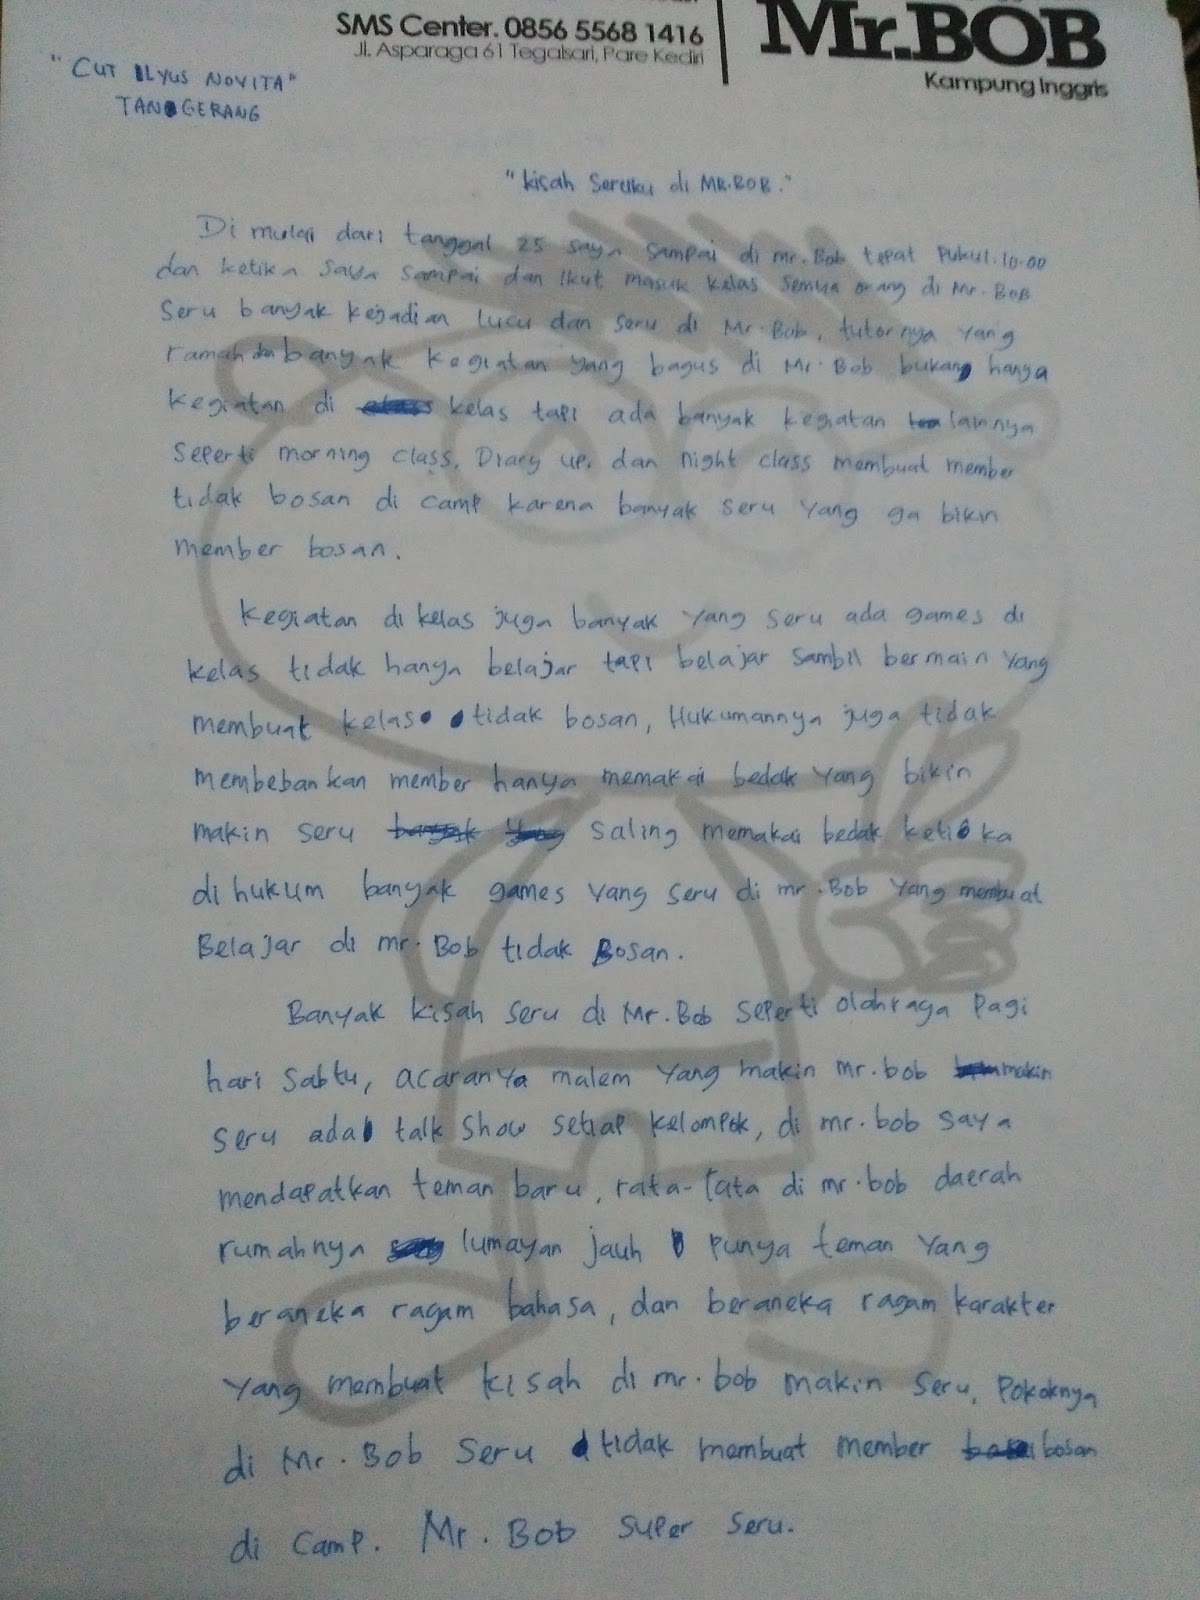 SMS Center. 0856 5568 1416
Jl. Asparaga 61 Tegalsari, Pare Kediri
Mr.BOB
Kampung Inggris
"CUT ILYUS NOVITA"
TANGERANG
"Kisah Seruku di MR.BOB."
Di mulai dari tanggal 25 saya sampai di mr.Bob tepat Pukul.10.00
dan ketika saya sampai dan Ikut masuk kelas semua orang di Mr.BOB
Seru banyak kejadian lucu dan seru di Mr.Bob, tutornya yang
ramah dan banyak kegiatan yang bagus di Mr.Bob bukan hanya
kegiatan di kelas tapi ada banyak kegiatan lainnya
Seperti morning class, Diary up, dan night class membuat member
tidak bosan di camp karena banyak seru yang ga bikin
member bosan.
Kegiatan di kelas juga banyak yang seru ada games di
kelas tidak hanya belajar tapi belajar sambil bermain yang
membuat kelas tidak bosan, Hukumannya juga tidak
membebankan member hanya memakai bedak yang bikin
makin seru saling memakai bedak ketika
di hukum banyak games yang seru di mr.Bob yang membuat
Belajar di mr.Bob tidak Bosan.
Banyak kisah seru di Mr.Bob seperti olahraga pagi
hari sabtu, acaranya malem yang makin mr.bob makin
seru ada talk show setiap kelompok, di mr.bob saya
mendapatkan teman baru, rata-rata di mr.bob daerah
rumahnya lumayan jauh punya teman yang
beraneka ragam bahasa, dan beraneka ragam karakter
yang membuat kisah di mr.bob makin seru, Pokoknya
di Mr.Bob Seru tidak membuat member bosan
di camp. Mr.Bob super seru.